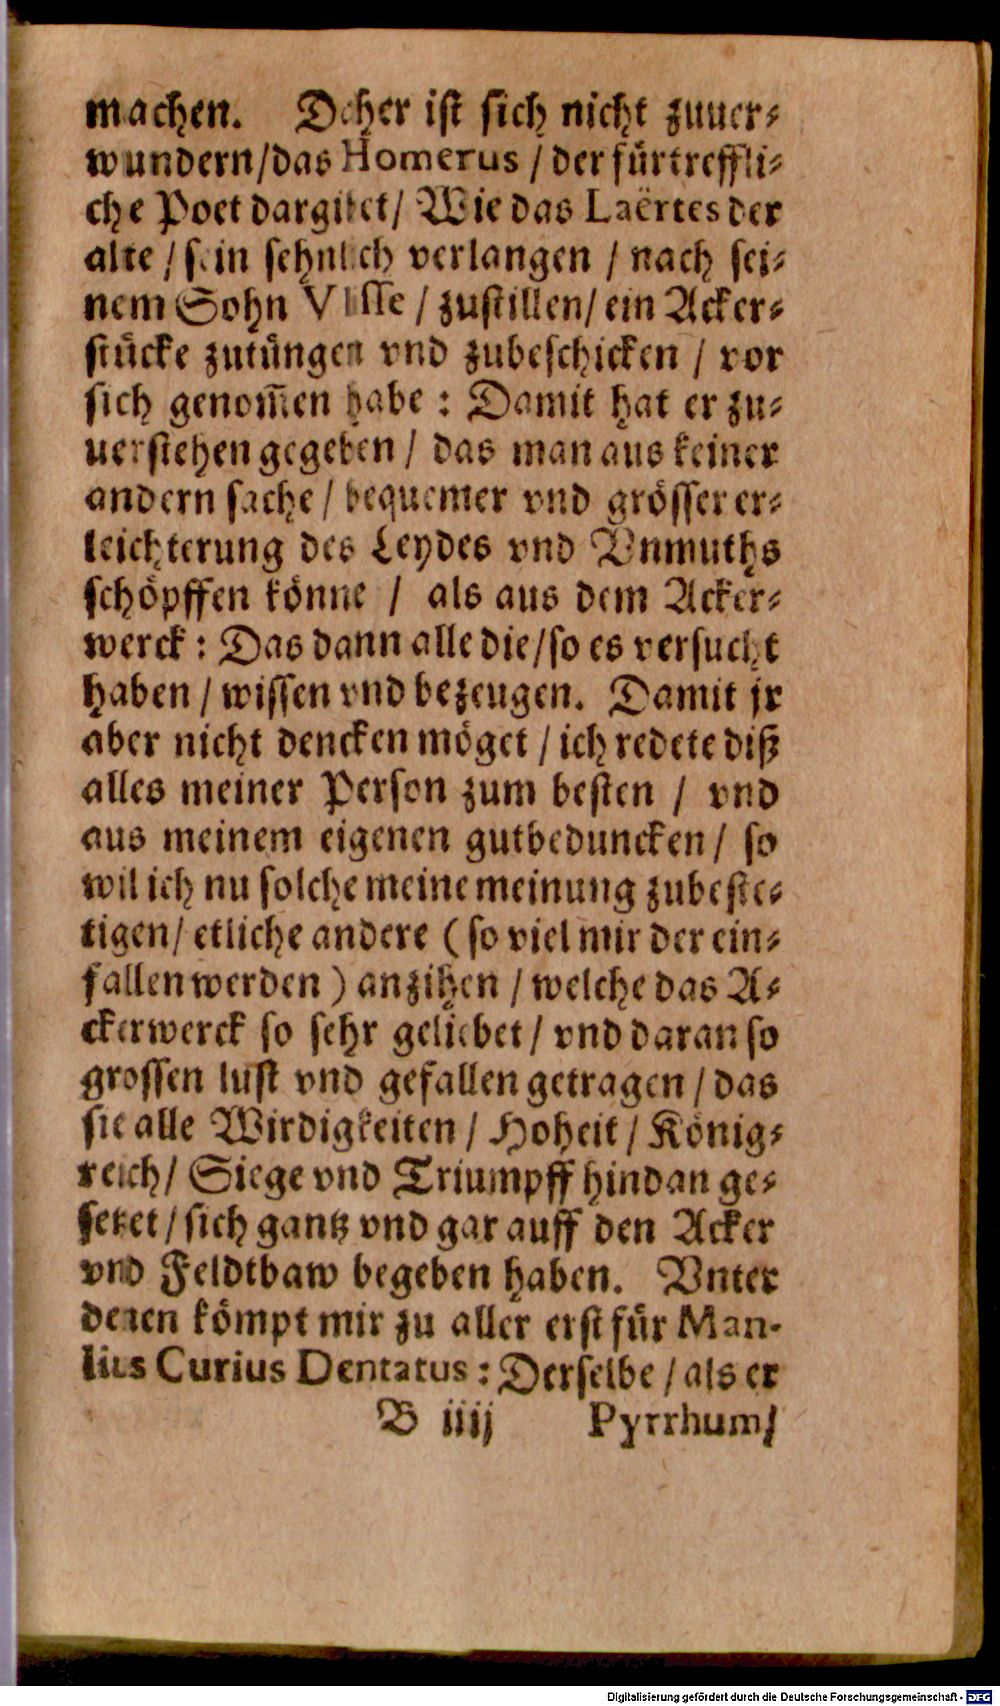 machen. Daher ist sich nicht zuuer-
wundern/das Homerus / der fürtreffli-
che Poet dargibet/ Wie das Laërtes der
alte / sein sehnlich verlangen / nach sei-
nem Sohn Vlisse / zustillen/ ein Acker-
stücke zutüngen vnd zubeschicken / vor
sich genom̃en habe : Damit hat er zu-
uerstehen gegeben / das man aus keiner
andern sache / bequemer vnd grösser er-
leichterung des Leydes vnd Vnmuths
schöpffen könne / als aus dem Acker-
werck : Das dann alle die/so es versucht
haben / wissen vnd bezeugen. Damit jr
aber nicht dencken möget / ich redete diß
alles meiner Person zum besten / vnd
aus meinem eigenen gutbeduncken / so
wil ich nu solche meine meinung zubeste-
tigen/ etliche andere ( so viel mir der ein-
fallen werden ) anzihen / welche das A-
ckerwerck so sehr geliebet / vnd daran so
grossen lust vnd gefallen getragen / das
sie alle Wirdigkeiten / Hoheit / König-
reich/ Siege vnd Triumpff hindan ge-
setzet / sich gantz vnd gar auff den Acker
vnd Feldtbaw begeben haben. Vnter
denen kömpt mir zu aller erst für Man-
lius Curius Dentatus : Derselbe / als er
B iiij Pyrrhum/
Digitalisierung gefördert durch die Deutsche Forschungsgemeinschaft - DFG